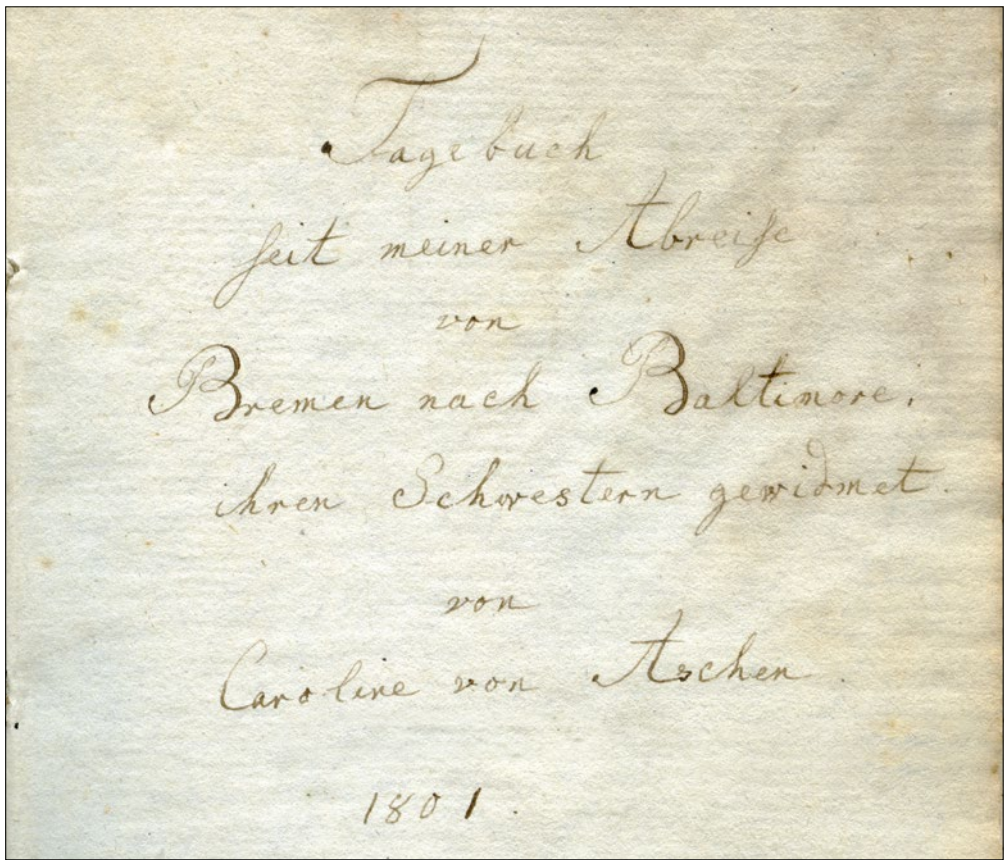 Tagebuch
seit meiner Abreise
von
Bremen nach Baltimore,
ihren Schwestern gewidmet.
von
Caroline von Aschen.
1801.